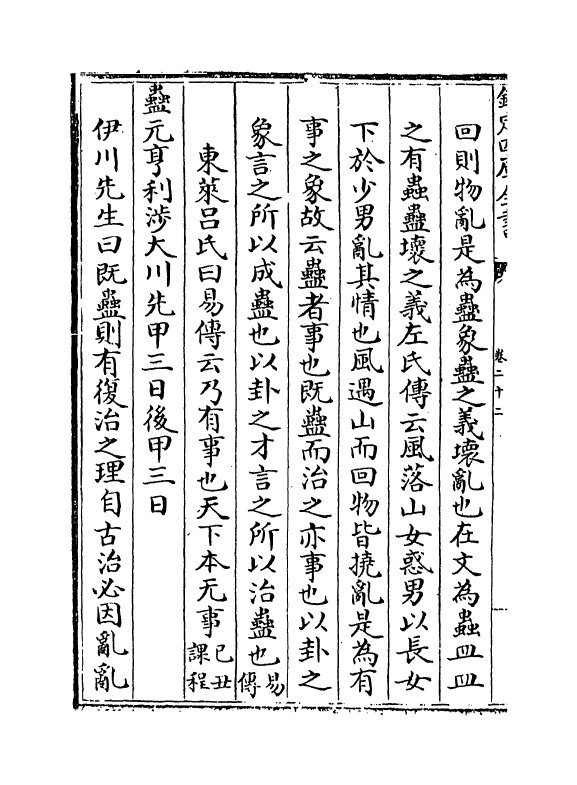 欽定四庫全書
卷二十二
回則物亂是為蠱象蠱之義壞亂也在文為蟲皿皿
之有蟲蠱壞之義左氏傳云風落山女惑男以長女
下於少男亂其情也風遇山而回物皆撓亂是為有
事之象故云蠱者事也既蠱而治之亦事也以卦之
象言之所以成蠱也以卦之才言之所以治蠱也易傳
東萊呂氏曰易傳云乃有事也天下本无事己丑課程
蠱元亨利涉大川先甲三日後甲三日
伊川先生曰既蠱則有復治之理自古治必因亂亂